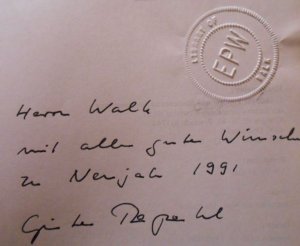 LIBRARY OF
EPW
Herrn Walk
mit allen guten Wünschen
zu Neujahr 1991
Günter